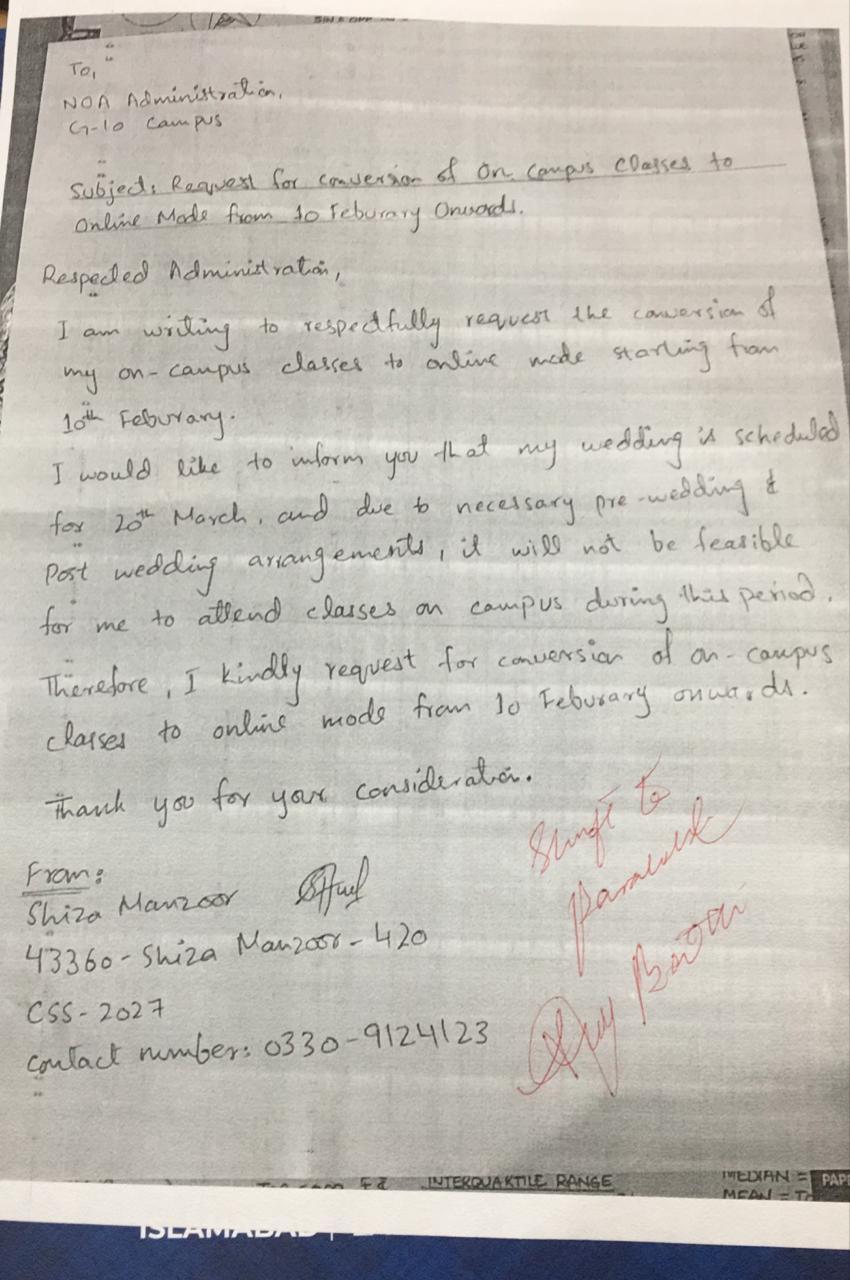 To,
NOA Administration,
G-10 Campus
Subject: Request for conversion of On Campus Classes to
Online Mode from 10 Feburary Onwards.
Respected Administration,
I am writing to respectfully request the conversion of
my on-campus classes to online mode starting from
10th Feburary.
I would like to inform you that my wedding is scheduled
for 20th March, and due to necessary pre-wedding &
Post wedding arrangements, it will not be feasible
for me to attend classes on campus during this period.
Therefore, I kindly request for conversion of on-campus
classes to online mode from 10 Feburary onwards.
Thank you for your consideration.
From:
Shiza Manzoor
43360-Shiza Manzoor-420
CSS-2027
Contact number: 0330-9124123
to
INTERQUARTILE RANGE
MEDIAN =
MEAN =
ISLAMABAD